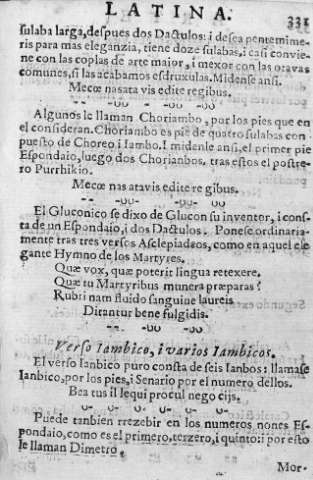 LATINA. 331
sulaba larga, despues dos Dactulos: i desea pentemime-
ris para mas eleganzia, tiene doze sulabas, i casi convie-
ne con las coplas de arte maior, i mexor con las otavas
comunes, si las acabamos esdruxulas. Midense ansi.
Mecœ nasata vis edite regibus.
-- -uu - -uu -uu
Algunos le llaman Choriambo, por los pies que en
el consideran. Choriambo es pie de quatro sulabas con-
puesto de Choreo i Iambo. I midenle ansi, el primer pie
Espondaio, luego dos Chorianbos. tras estos el postre-
ro Purrhikio.
Mecœ nas atavis edite re gibus.
-- -uu- -uu- uu
El Gluconico se dixo de Glucon su inventor, i cons-
ta de un Espondaio, i dos Dactulos. Ponese ordinaria-
mente tras tres versos Asclepiadeos, como en aquel ele-
gante Hymno de los Martyres.
Quæ vox, quæ poterit lingua retexere.
Quæ tu Martyribus munera præparas?
Rubri nam fluido sanguine laureis
Ditantur bene fulgidis.
-- -uu -uu
Verso Iambico, i varios Iambicos.
El verso Ianbico puro consta de seis Ianbos: llamase
Ianbico, por los pies, i Senario por el numero dellos.
Bea tus il lequi procul nego cijs.
u- u- u- u- u- u-
Puede tanbien rrezebir en los numeros nones Es-
pondaio, como es el primero, terzero, i quinto: i por esto
le llaman Dimetro.
Mor-